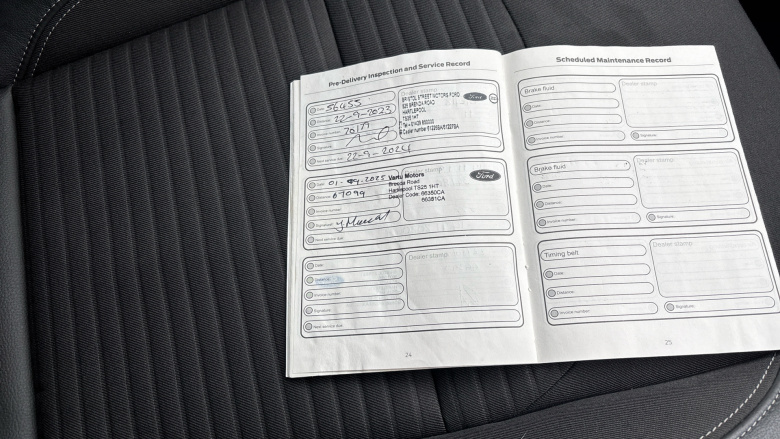 Pre-Delivery Inspection and Service Record
Dealer stamp
Date: 56455
22-9-2023
70179
Signature:
Next service due: 22-9-2024
BRISTOL STREET MOTORS FORD
BRENDA ROAD
HARTLEPOOL
TS25 1HT
Ford
Date: 01-04-2025
Distance: 67094
Invoice number:
Signature:
Next service due:
Dealer stamp
Vertu Motors
Brenda Road
Hartlepool TS25 1HT
Dealer Code: 66350CA
66381CA
Ford
Date:
Distance:
Invoice number:
Signature:
Next service due:
Dealer stamp
24
Scheduled Maintenance Record
Brake fluid
Date:
Distance:
Invoice number:
Dealer stamp
Signature:
Brake fluid
Date:
Distance:
Invoice number:
Dealer stamp
Signature:
Timing belt
Date:
Distance:
Invoice number:
Dealer stamp
Signature:
25